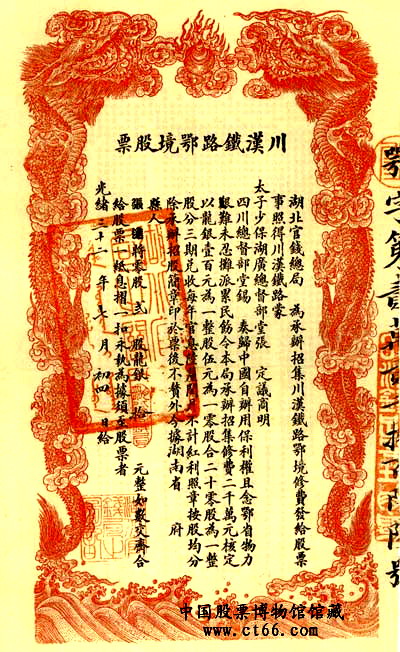 川漢鐵路鄂境股票
湖北官錢總局 為承辦招集川漢鐵路鄂境修費發給股票
事照得川漢鐵路蒙
太子少保湖廣總督部堂張 定議商明
四川總督部堂錫 奏歸中國自辦用保利權且念鄂省物力
艱難未忍攤派累民飭令本局承辦招集修費二千萬元核定
以龍銀壹百元為一整股伍元為一零股合二十零股為一整
股分三期兌收每年官息 計紅利照章按股均分
除承辦招股簡章印於票後不贅外今據湖南省 府
縣人
張 將零股 貳 股龍銀 拾 元整如數交齊合
給股票一紙息摺一扣永執為據須至股票者
光緒三十二年 七 月 初四 日給
鄂字第壹萬
號
中国股票博物馆馆藏
www.ct66.com